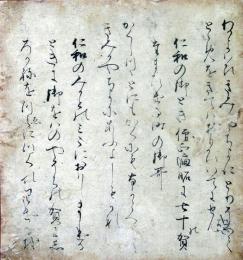 わかよはひきみかやちよにとりそへて
とゝめおきてはおもひいてにせよ
仁和の御とき僧正遍昭に七十賀
たまひける時の御哥
かくしつゝとにもかくにもなからへて
きみかやちよにあふよしもかな
仁和のみかとのみこにおはしましける
ときに御をはのやそちの賀に
ろかねをつゑにつくれり